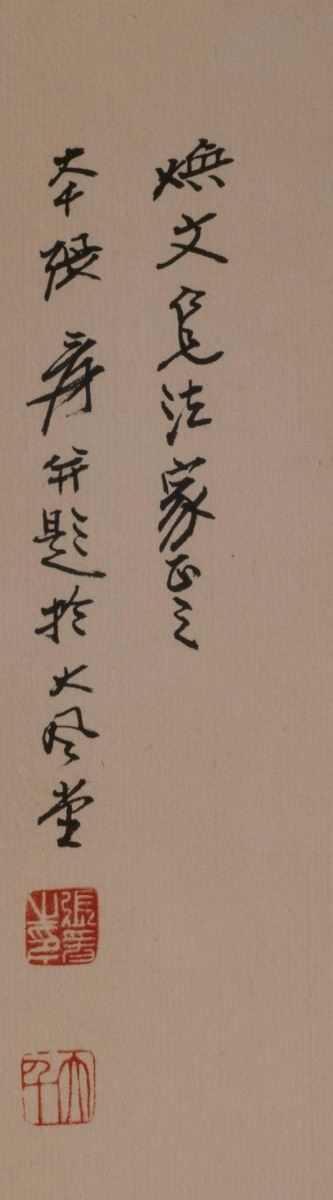 煥文仁兄法家正之
大千張爰並題於大風堂
張爰之印
大千